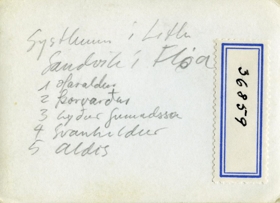 Systkinin í Litlu
Sandvík í Flóa
1 Haraldur
2 Þorvarður
3 Lýður Gumundsson
4 Svanhildur
5 Aldís
36859